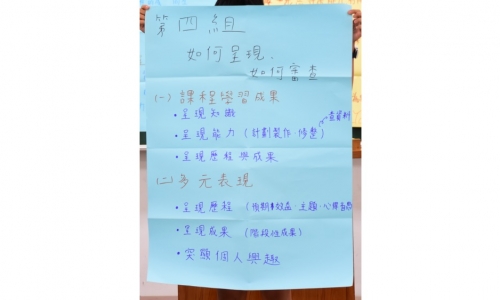 第四組
如何呈現.
如何審查
(一) 課程學習成果
• 呈現知識
查資料
• 呈現能力 (計劃製作·修整)
• 呈現歷程與成果
(二) 多元表現
• 呈現歷程 (預期效益·主題·心得省思
• 呈現成果 (階段性成果)
• 突顯個人興趣